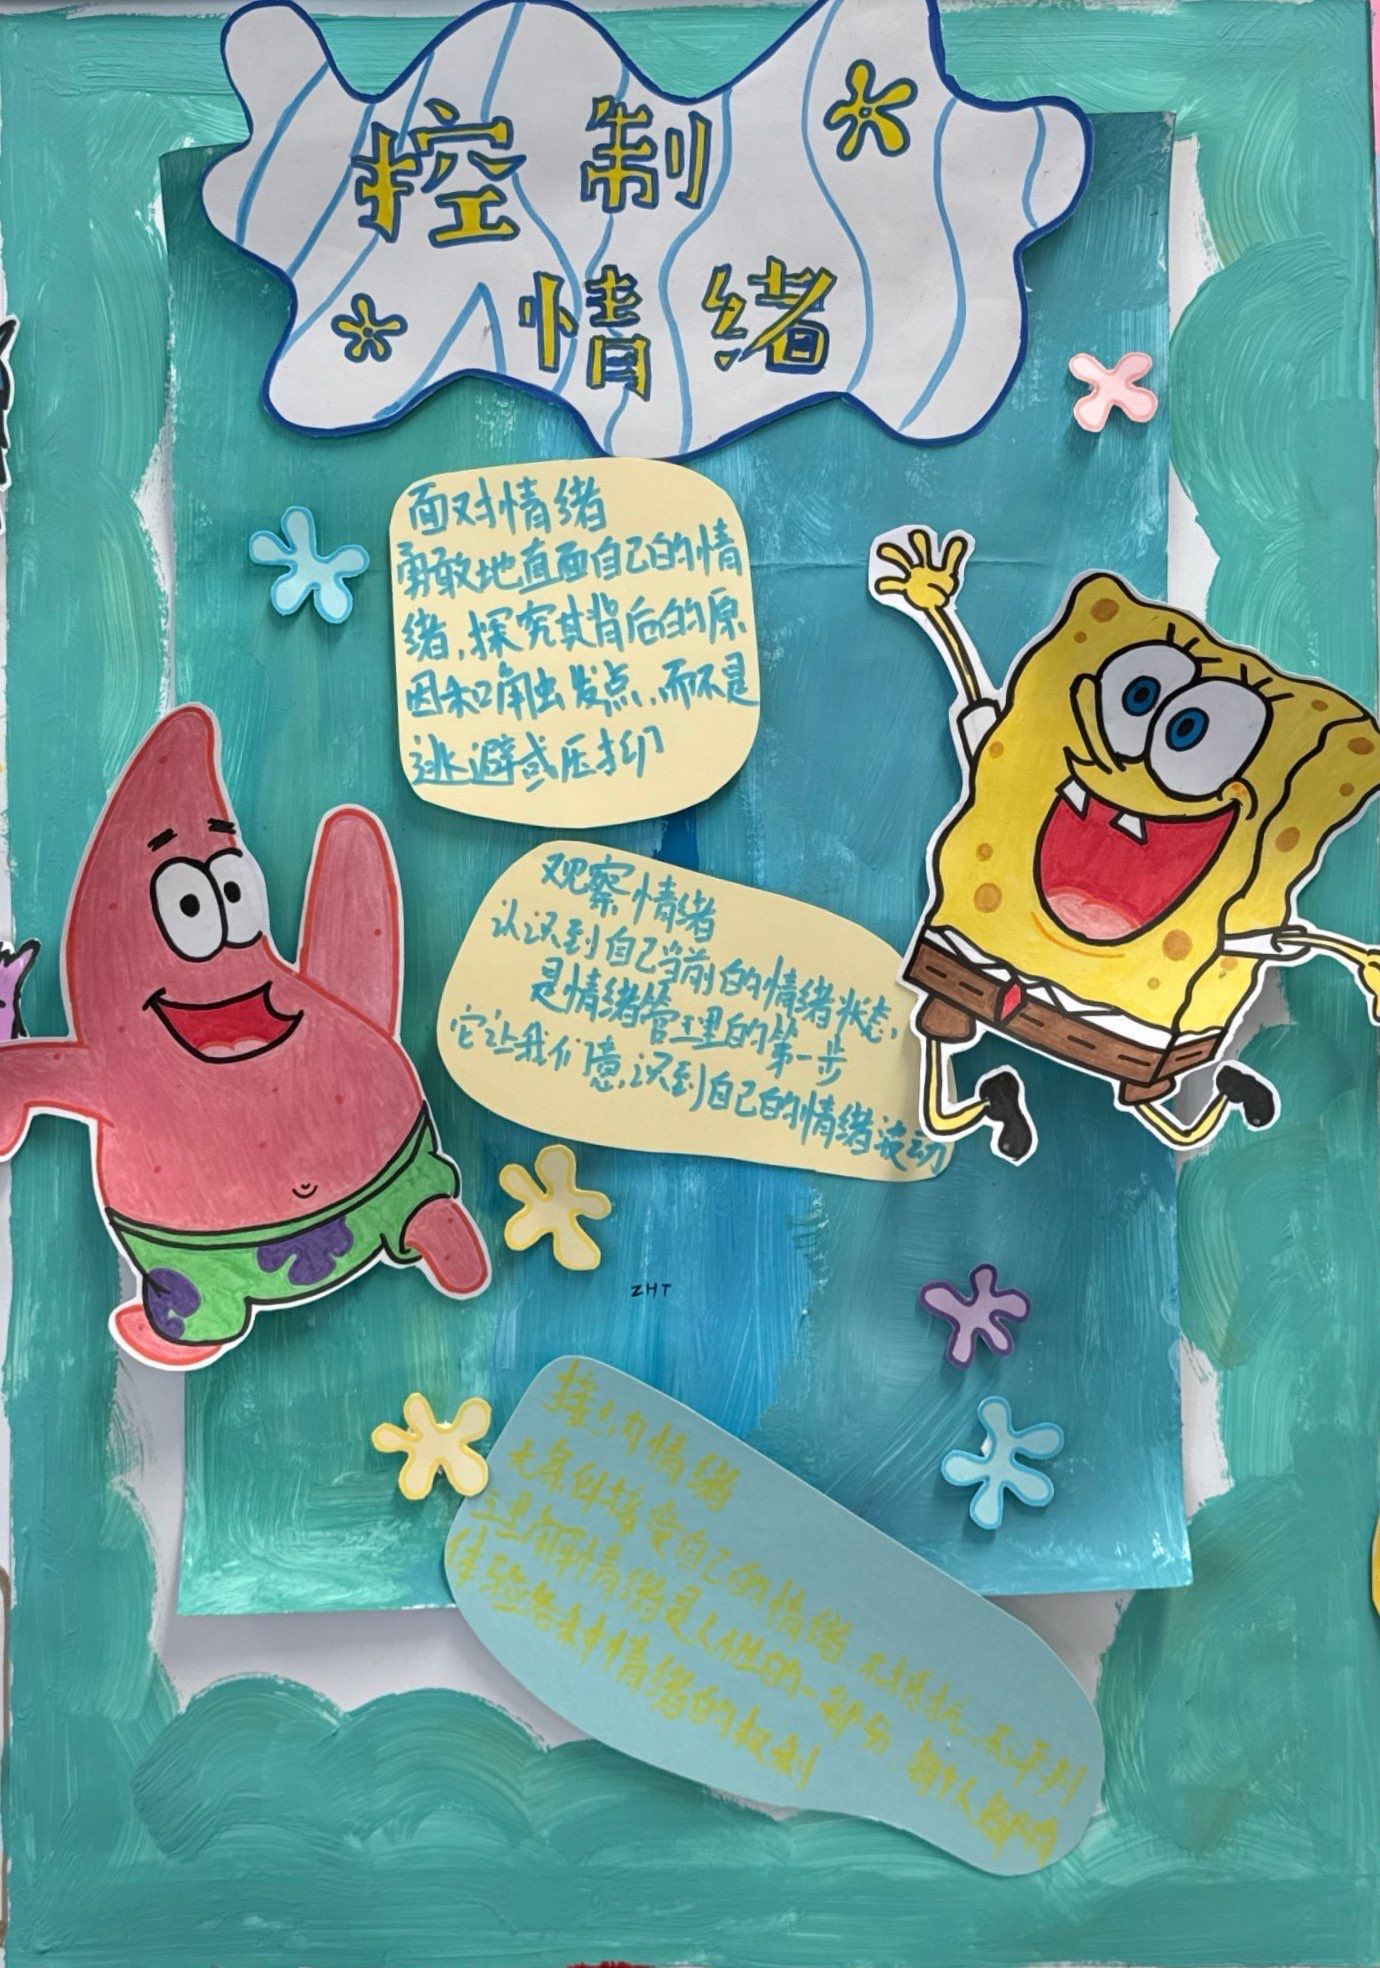 控制
情绪
面对情绪
勇敢地直面自己的情
绪,探究其背后的原
因和触发点,而不是
逃避或压抑
观察情绪
认识到自己当前的情绪状态,
是情绪管理的第一步
它让我们意识到自己的情绪波动
ZHT
接纳情绪
无条件接受自己的情绪 不抵抗 不评判
理解情绪是人性的一部分 每个人都有
体验各种情绪的权利